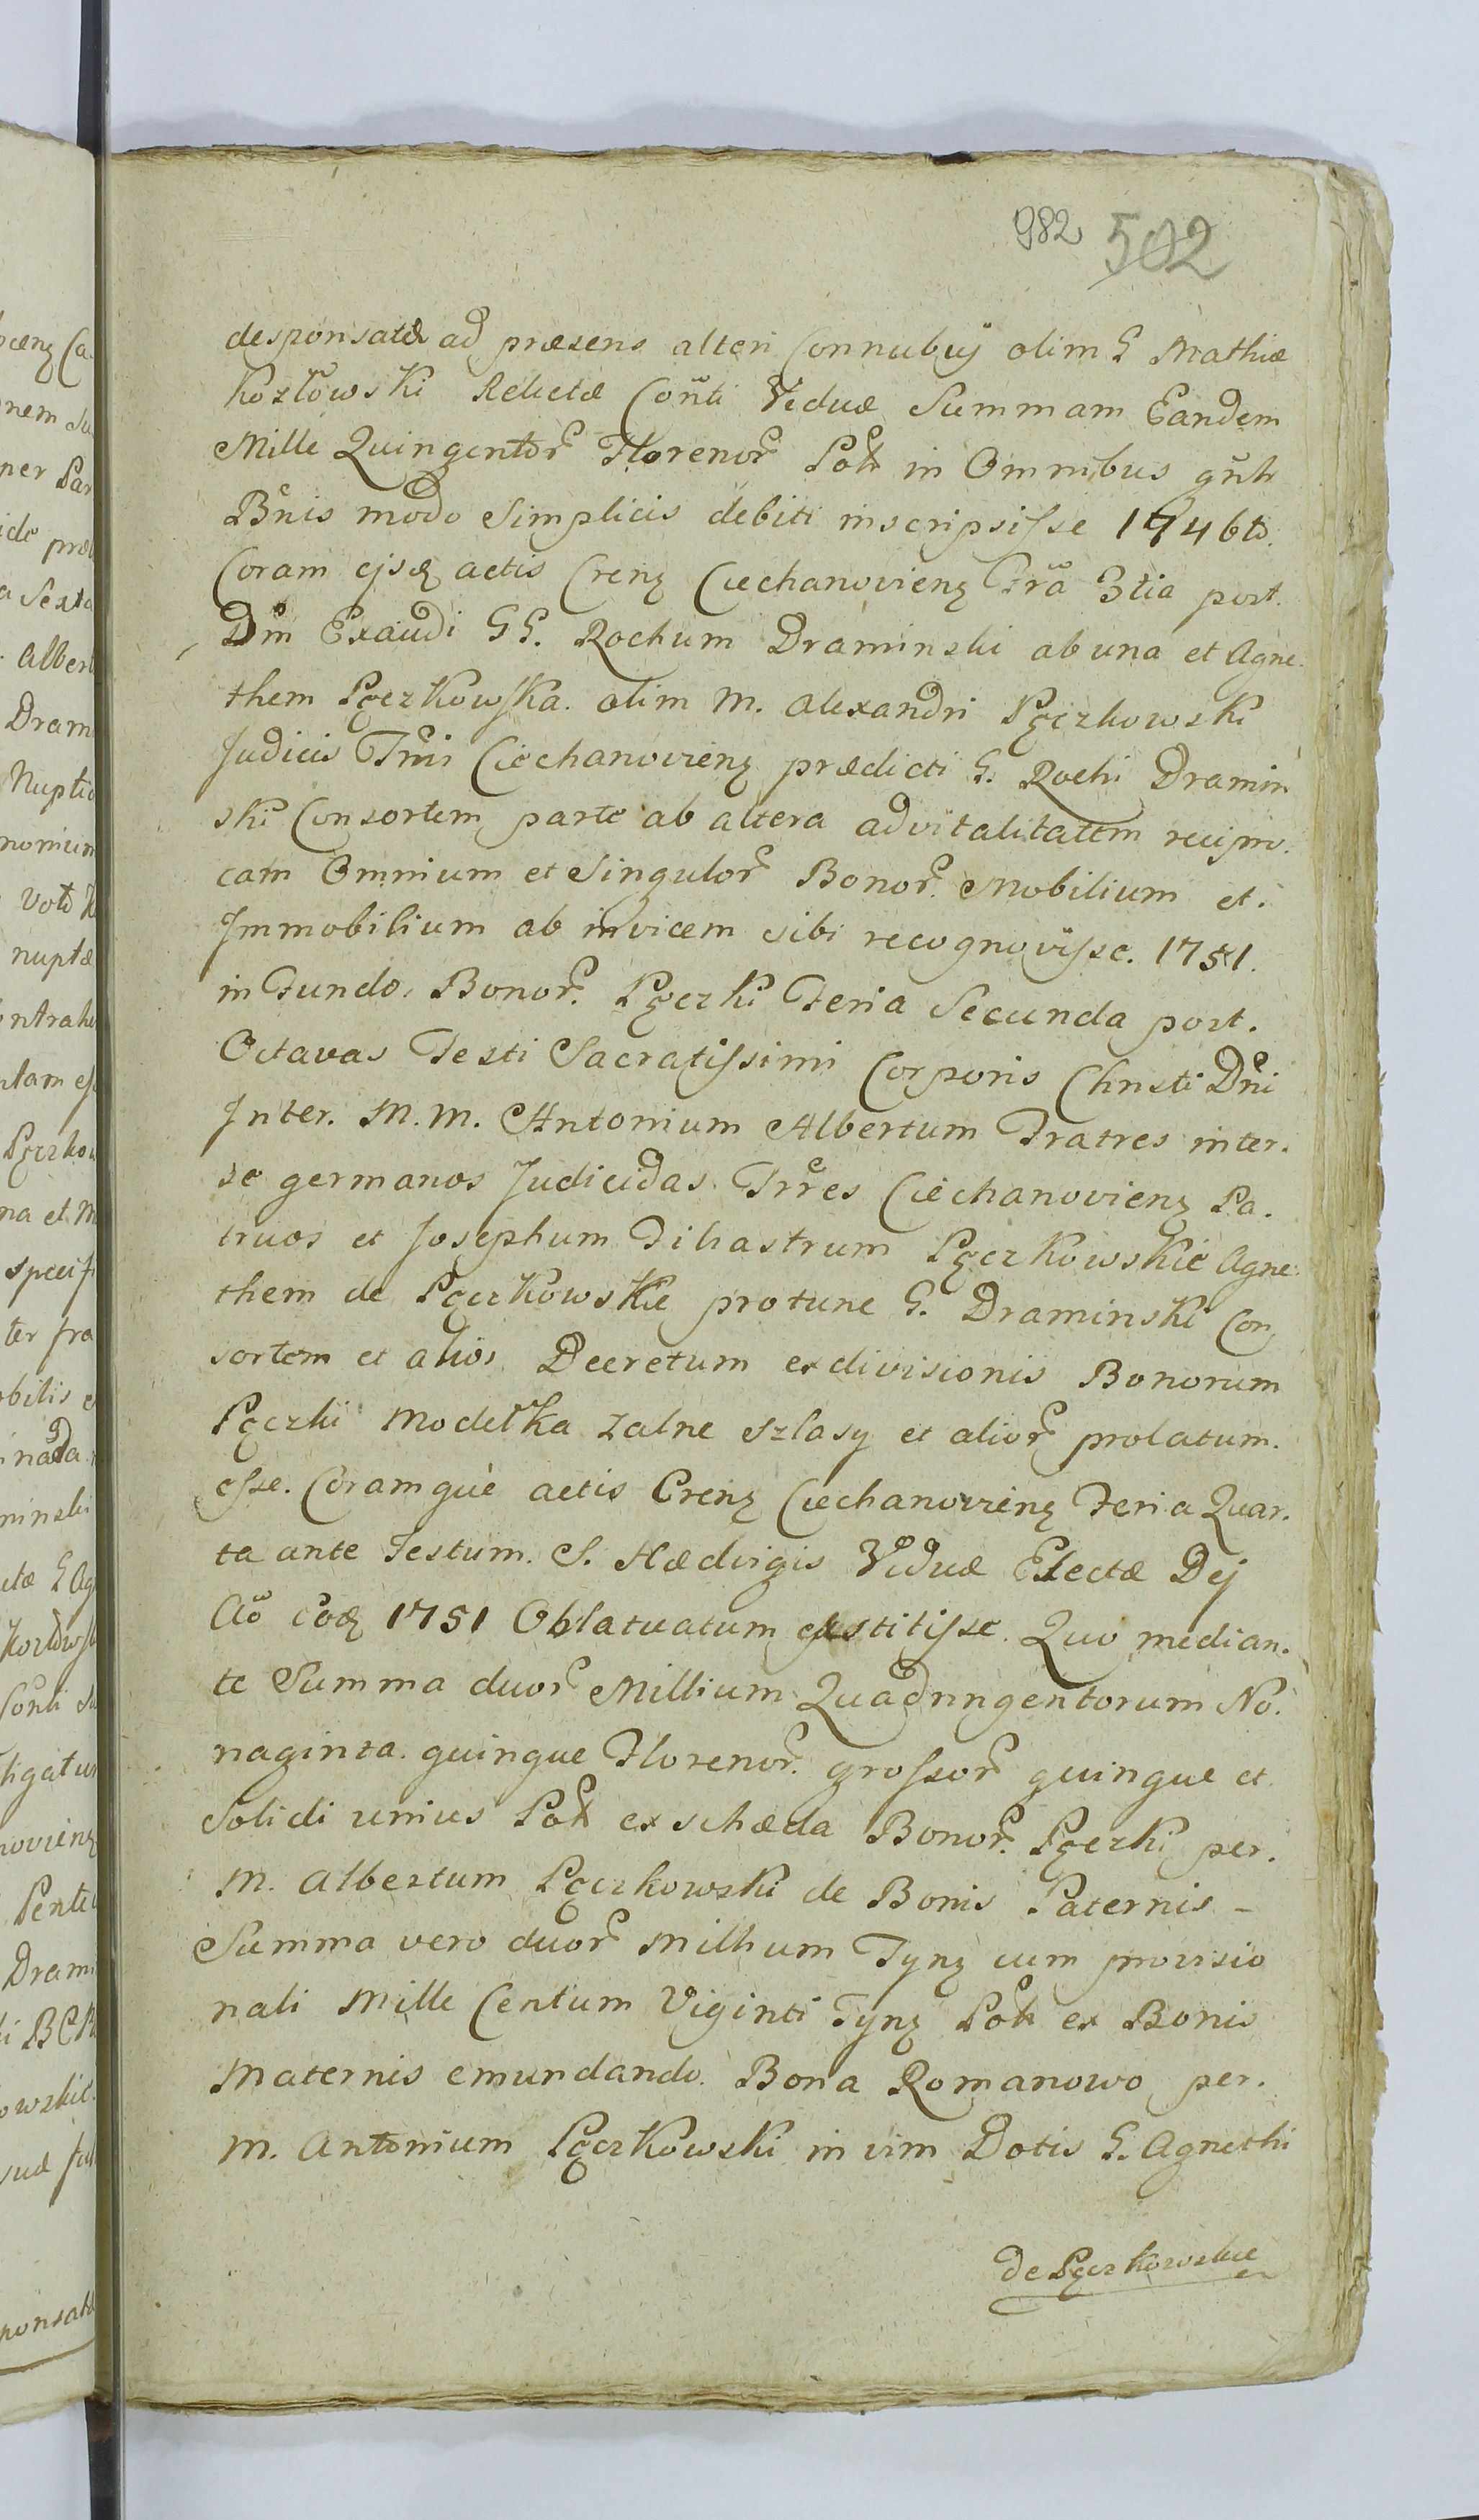 982 502
desponsatæ ad præsens alteri Connubÿ olim G Mathiæ
Kozłowski Relictæ Conti Viduæ Summam Eandem
Mille Quingentor Florenor Pol in Omnibus gnlr
Bnis modo Simplicis debiti inscripsisse 1746to.
Coram ejsq actis Crenz Ciechanovienz Fra 3tia post.
Dm Exaudi GG. Rochum Draminski ab una et Agne.
them Pęczkowska. olim M. Alexandri Pęczkowski
Judicis Trris Ciechanovienz prædicti G. Rochi Dramin
ski Consortem parte ab altera advitalitatem recipro.
cam Omnium et Singulor Bonor. Mobilium et.
Immobilium ab invicem sibi recognovisse. 1751.
in Fundo. Bonor. Pęczki Feria Secunda post.
Octavas Festi Sacratissimi Corporis Christi Dni
Inter. M.M. Antonium Albertum Fratres inter.
se germanos Judicidas. Trres Ciechanovienz Pa.
truos et Josephum Filiastrum Pęczkowskie Agne.
them de Pęczkowskie protunc G. Draminski Con
sortem et alios Decretum exdivisionis Bonorum
Pęczki Modełka Zalne Szlasy et alior prolatum.
esse. Coramque actis Crenz Ciechanovienz Feria Quar.
ta ante Festum. S. Hædvigis Viduæ Electæ Dej
Ao Eoq 1751 Oblatuatum exstitisse. Quo median.
te Summa duor Millium Quadringentorum No.
naginta. quinque Florenor. grossor quinque et
Solidi unius Pol ex schæda Bonor. Pęczki per.
M. Albertum Pęczkowski de Bonis Paternis –
Summa vero duor Millium Tynz cum provisio
nali Mille Centum Viginti Tynz Pol ex Bonis
Maternis emundando. Bona Romanowo per.
M. Antonium Pęczkowski in vim Dotis G. Agnethi
de Pęczkowskie